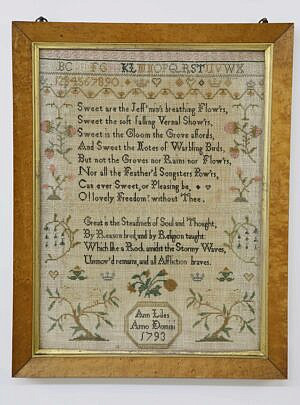 KL
1234567890
Sweet are the Jess'min's breathing Flow'rs,
Sweet the soft falling Vernal Show'rs,
Sweet is the Gloom the Grove affords,
And Sweet the Notes of Warbling Birds,
But not the Groves nor Rains nor Flow'rs,
Nor all the Feather'd Songsters Pow'rs,
Can ever Sweet, or Pleasing be,
O! lovely Freedom! without Thee.
Great is the Steadiness of Soul and Thought,
By Reason bred, and by Religion taught:
Which like a Rock amidst the Stormy Waves,
Unmov'd remains, and all Affliction braves.
Ann Liles
Anno Domini
1793